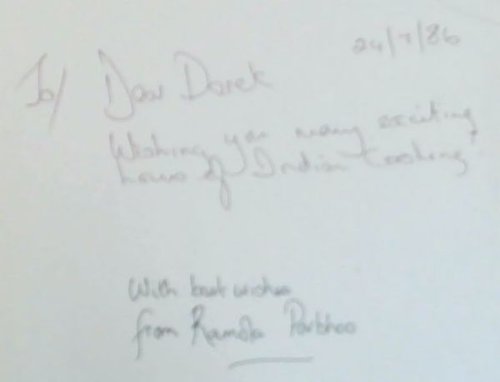 24/7/86
To/ Dear Derek
Wishing you many exciting
hours of Indian Cooking
With best wishes
from Ramola Parbhoo